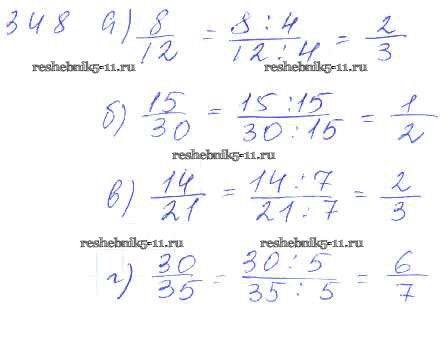 348 а) 8/12 = 8 : 4/12 : 4 = 2/3
reshebnik5-11.ru reshebnik5-11.ru
б) 15/30 = 15 : 15/30 : 15 = 1/2
reshebnik5-11.ru
в) 14/21 = 14 : 7/21 : 7 = 2/3
reshebnik5-11.ru reshebnik5-11.ru
г) 30/35 = 30 : 5/35 : 5 = 6/7